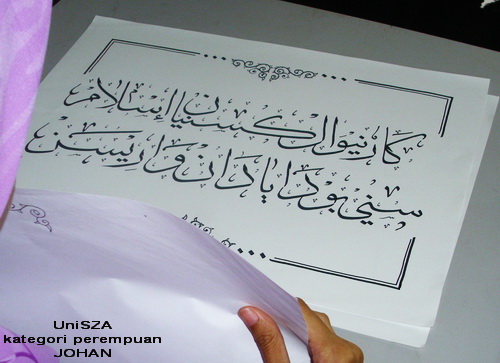 كارنيوال كسنيان إسلام
سني بودايا دان واريسن
UniSZA
kategori perempuan
JOHAN